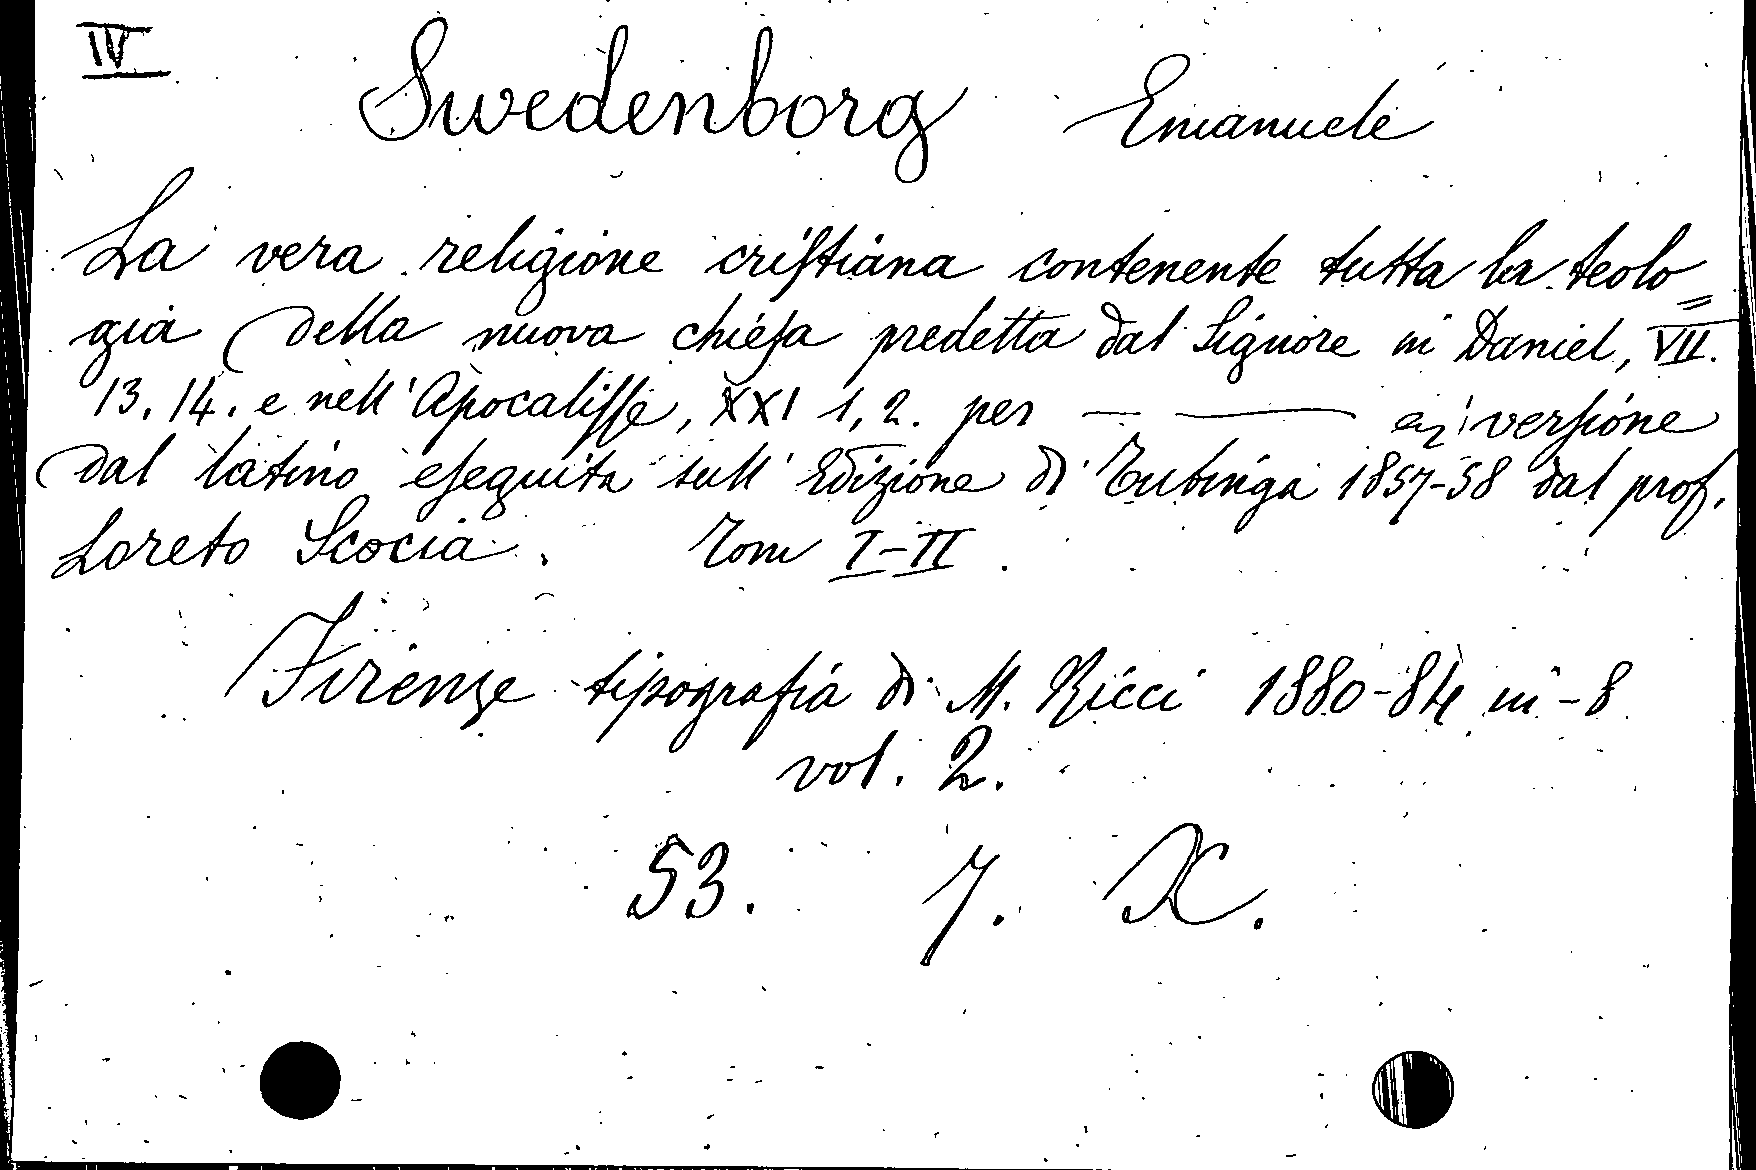 IV
Swedenborg Emanuele
La vera religione cristiana contenente tutta la teolo=
gia della nuova chiesa predetta dal Signore in Daniel, VII.
13. 14. e nell' Apocalisse, XXI 1, 2. per — — versione
dal latino eseguita sull' Edizione di Tubinga 1857-58 dal prof.
Loreto Scocia. Tom I-II.
Firenze tipografia di M. Ricci 1880-84 in -8
vol. 2.
53. 7. X.